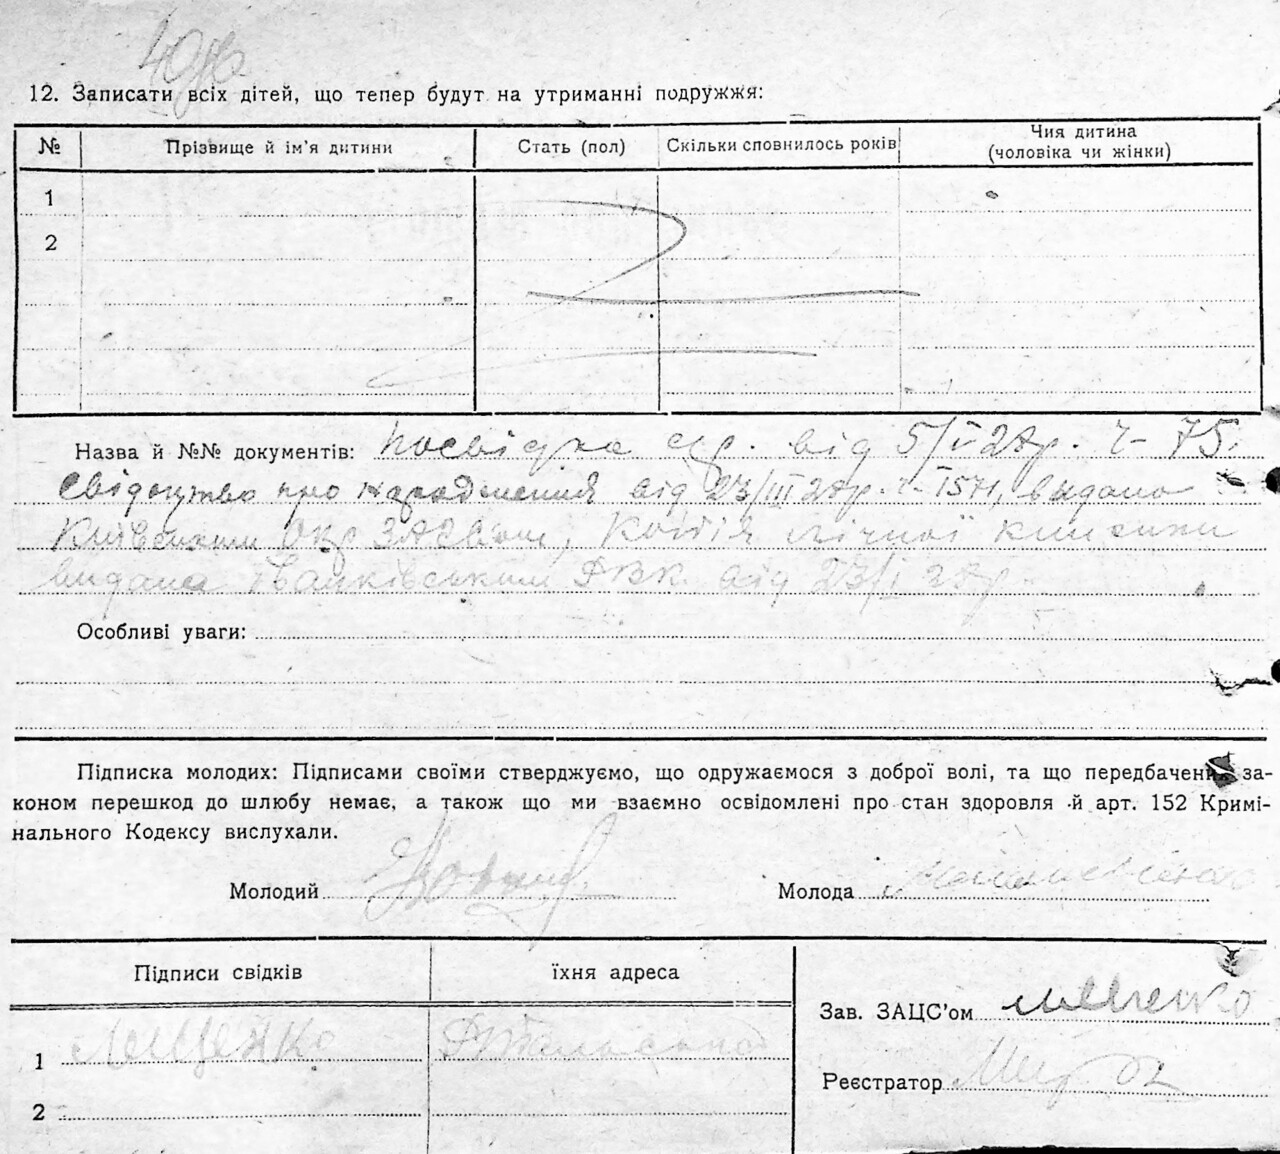 12. Записати всіх дітей, що тепер будут на утриманні подружжя:
№ Прізвище й ім'я дитини Стать (пол) Скільки сповнилось років Чия дитина (чоловіка чи жінки)
1
2
Назва й №№ документів: посвідка від 5/V 28р. ч- 75.
Свідоцтво про народження від 23/III 28р. ч-1571, видано
Київським Окр ЗАГСом, копія книжки
видана Іванківським РВК від 23/I 28р.
Особливі уваги:
Підписка молодих: Підписами своїми стверджуємо, що одружаємося з доброї волі, та що передбачених за-
коном перешкод до шлюбу немає, а також що ми взаємно освідомлені про стан здоровля й арт. 152 Кримі-
нального Кодексу вислухали.
Молодий Молода
Підписи свідків їхня адреса
Зав. ЗАЦС'ом
1 Лещенко
Реєстратор
2